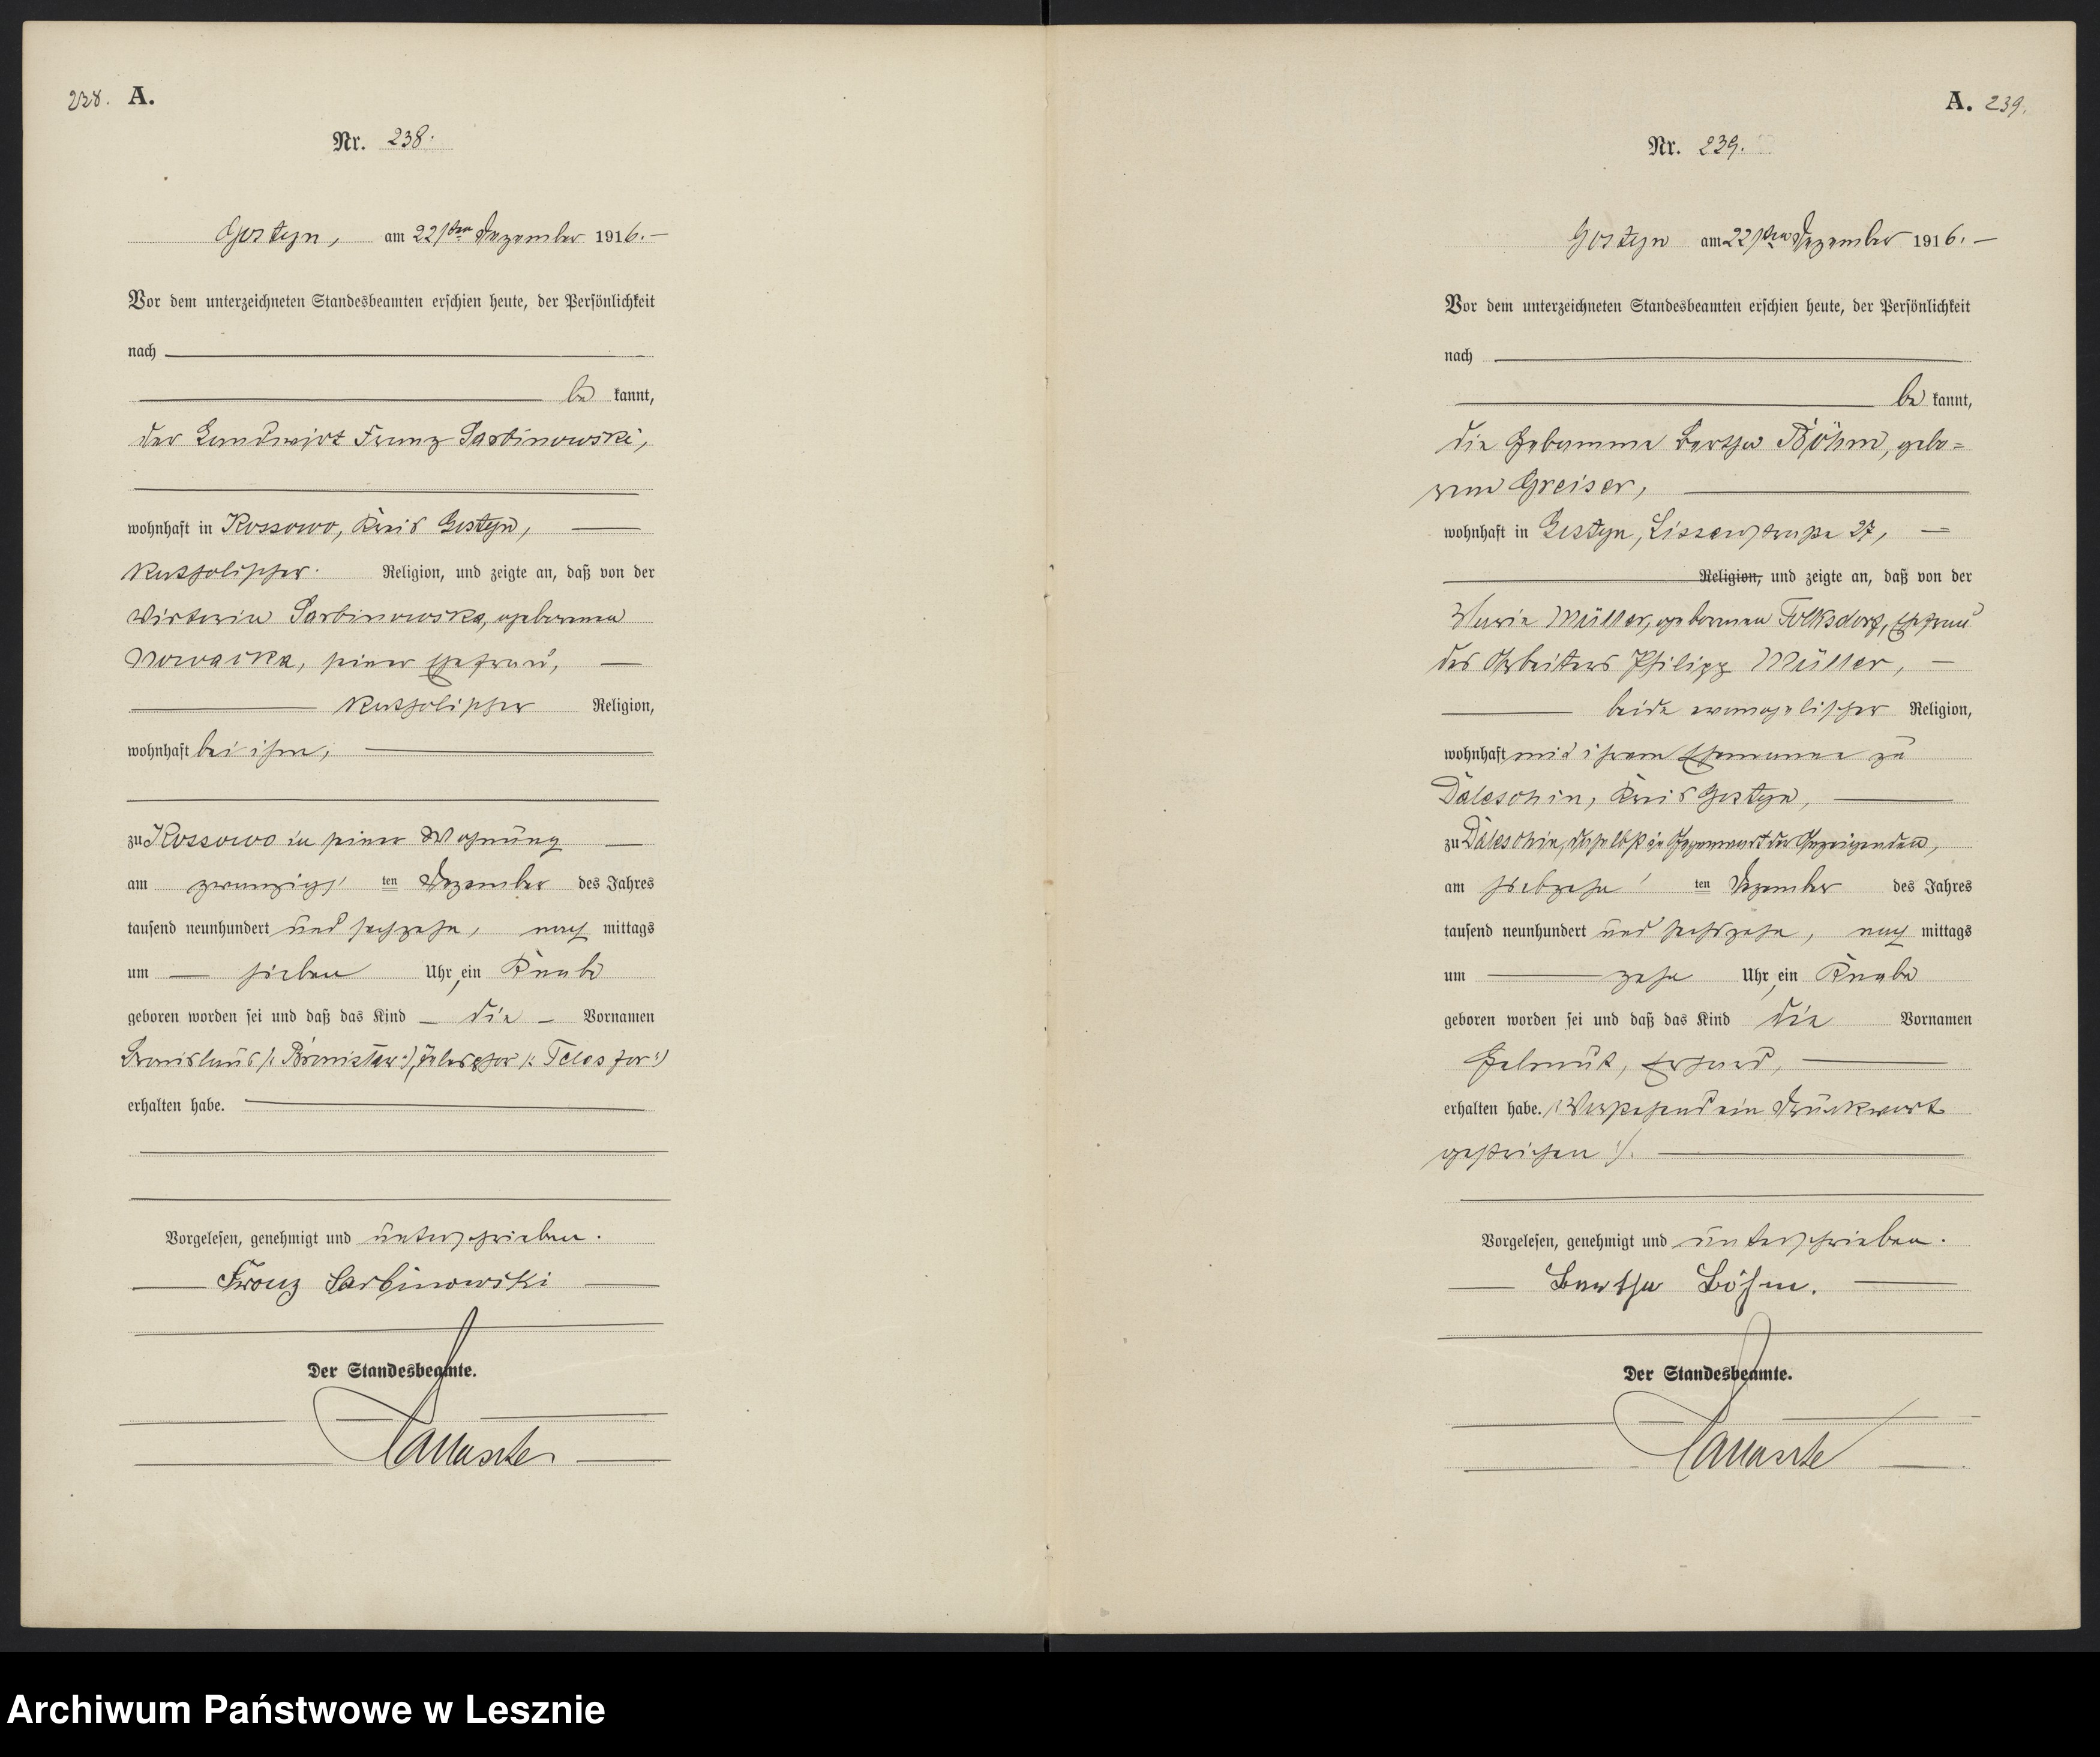 238. A.
Nr. 238.
Gostyn, am 22sten Dezember 1916.
Vor dem unterzeichneten Standesbeamten erschien heute, der Persönlichkeit
nach
be kannt,
der Landwirt Franz Sarbinowski,
wohnhaft in Kossowo, Kreis Gostyn,
katholischer Religion, und zeigte an, daß von der
Wirtin Sarbinowska, geborenen
Nowacka, seiner Ehefrau,
katholischer Religion,
wohnhaft bei ihm,
zu Kossowo in seiner Wohnung
am zwanzigsten Dezember des Jahres
tausend neunhundert und sechzehn, nach mittags
um sieben Uhr, ein Knabe
geboren worden sei und daß das Kind die Vornamen
Bronislaus /: Bronisław :/ Telesphor /: Telesfor :/
erhalten habe.
Vorgelesen, genehmigt und unterschrieben.
Franz Sarbinowski
Der Standesbeamte.
A. 239.
Nr. 239.
Gostyn am 22sten Dezember 1916.
Vor dem unterzeichneten Standesbeamten erschien heute, der Persönlichkeit
nach
be kannt,
die Hebamme Bertha Böhm, gebo=
rene Greiser,
wohnhaft in Gostyn, Lissenstraße 27,
Religion, und zeigte an, daß von der
Marie Müller, geborenen Folksdorf, Ehefrau
des Arbeiters Philipp Müller,
beide evangelischer Religion,
wohnhaft mit ihrem Ehemanne zu
Daleschin, Kreis Gostyn,
zu Daleschin, daselbst in Gegenwart der Anzeigenden,
am siebzehnten Dezember des Jahres
tausend neunhundert und sechszehn, nach mittags
um zehn Uhr, ein Knabe
geboren worden sei und daß das Kind die Vornamen
Helmut, Erhard,
erhalten habe. /: Vorstehend ein Druckwort
gestrichen :/.
Vorgelesen, genehmigt und unterschrieben.
Bertha Böhm.
Der Standesbeamte.
Archiwum Państwowe w Lesznie